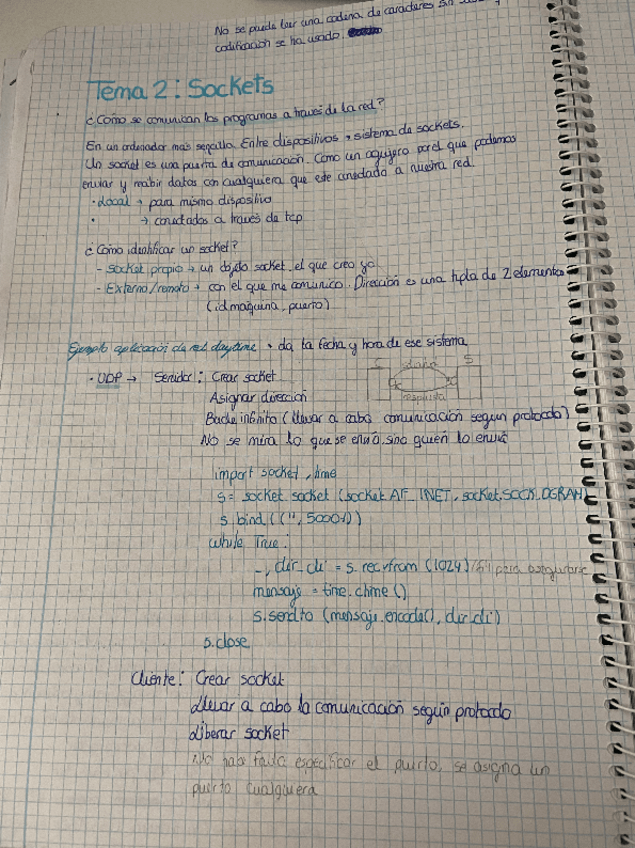 No se puede leer una cadena de caracteres sin
codificación se ha usado.
Tema 2: Sockets
¿Cómo se comunican los programas a través de la red?
En un ordenador más sencilla. Entre dispositivos → sistema de sockets.
Un socket es una puerta de comunicación. Como un agujero por el que podemos
enviar y recibir datos con cualquiera que esté conectado a nuestra red.
· Local → para mismo dispositivo
· → conectados a través de tcp
¿Cómo identificar un socket?
- Socket propio → un objeto socket, el que creo yo
- Externo/remoto → con el que me comunico. Dirección es una tupla de 2 elementos
(id maquina, puerto)
Ejemplo aplicación de red daytime → da la fecha y hora de ese sistema
· UDP → Servidor: Crear socket
Asignar dirección
Bucle infinito (llevar a cabo comunicación según protocolo)
No se mira lo que se envió, sino quién lo envió
C S
respuesta
import socket, time
s = socket.socket (socket.AF_INET, socket.SOCK_DGRAM)
s.bind (('', 50001))
while True:
_, dir_cli = s.recvfrom (1024)
mensaje = time.ctime ()
s.sendto (mensaje.encode(), dir_cli)
s.close
Cliente: Crear socket
Llevar a cabo la comunicación según protocolo
Liberar socket
No hace falta especificar el puerto, se asigna un
puerto cualquiera